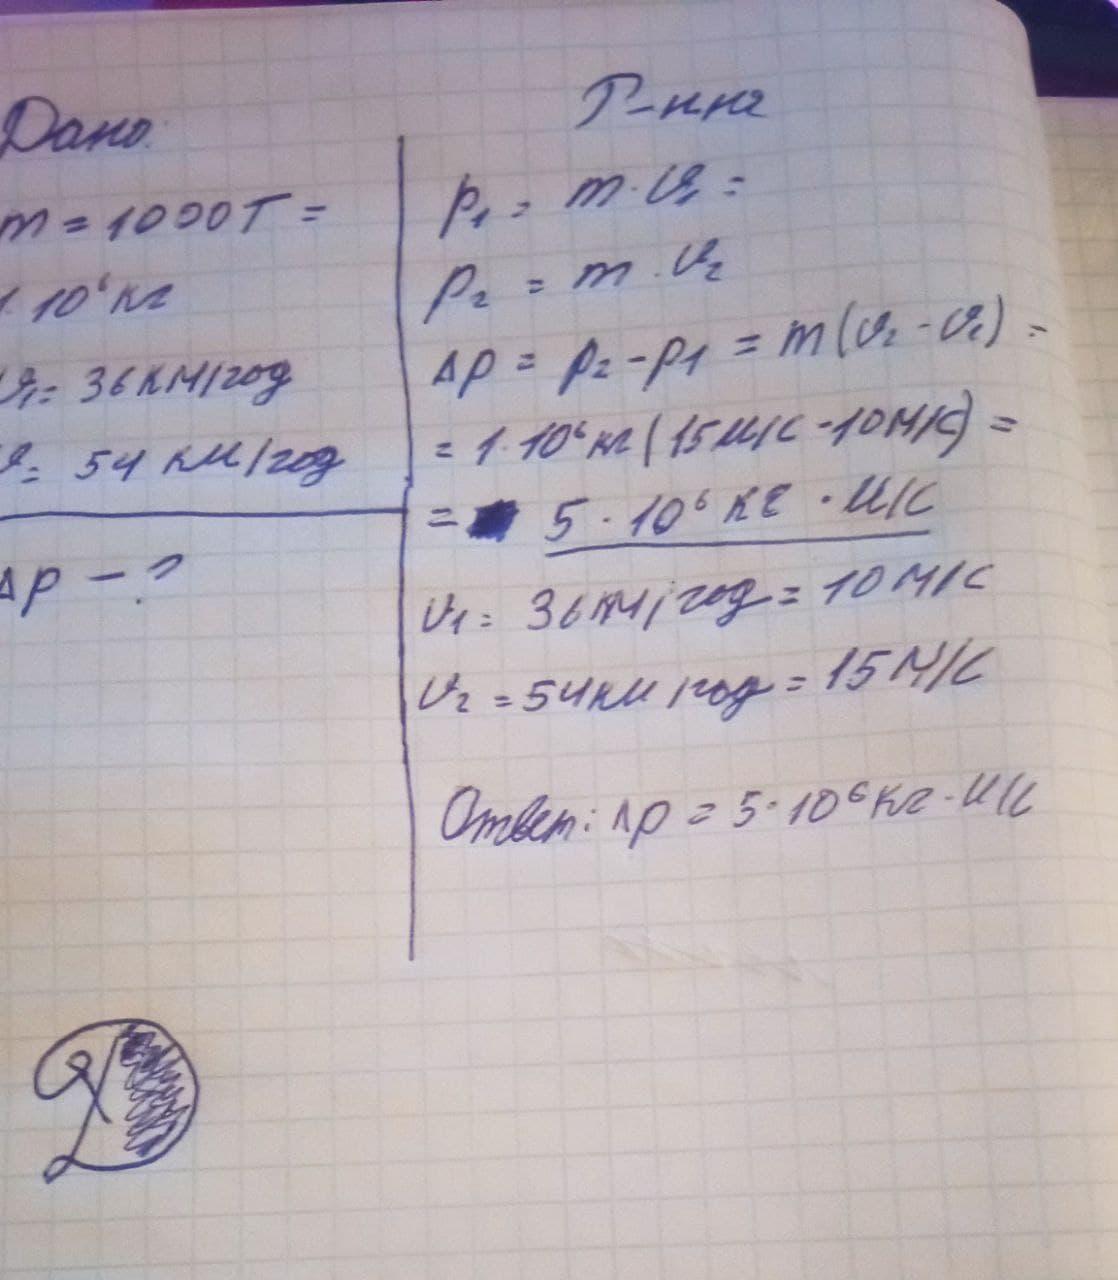 Дано:
m = 1000т =
1·10⁶ кг
υ₁= 36 км/год
υ= 54 км/год
Δp – ?
Р-ння
p₁ = m·υ₁ =
p₂ = m·υ₂
Δp = p₂-p₁ = m(υ₂-υ₁) =
= 1·10⁶ кг (15м/с -10м/с) =
= 5·10⁶ кг·м/с
υ₁= 36км/год = 10м/с
υ₂ = 54км/год = 15м/с
Ответ: Δp = 5·10⁶ кг·м/с